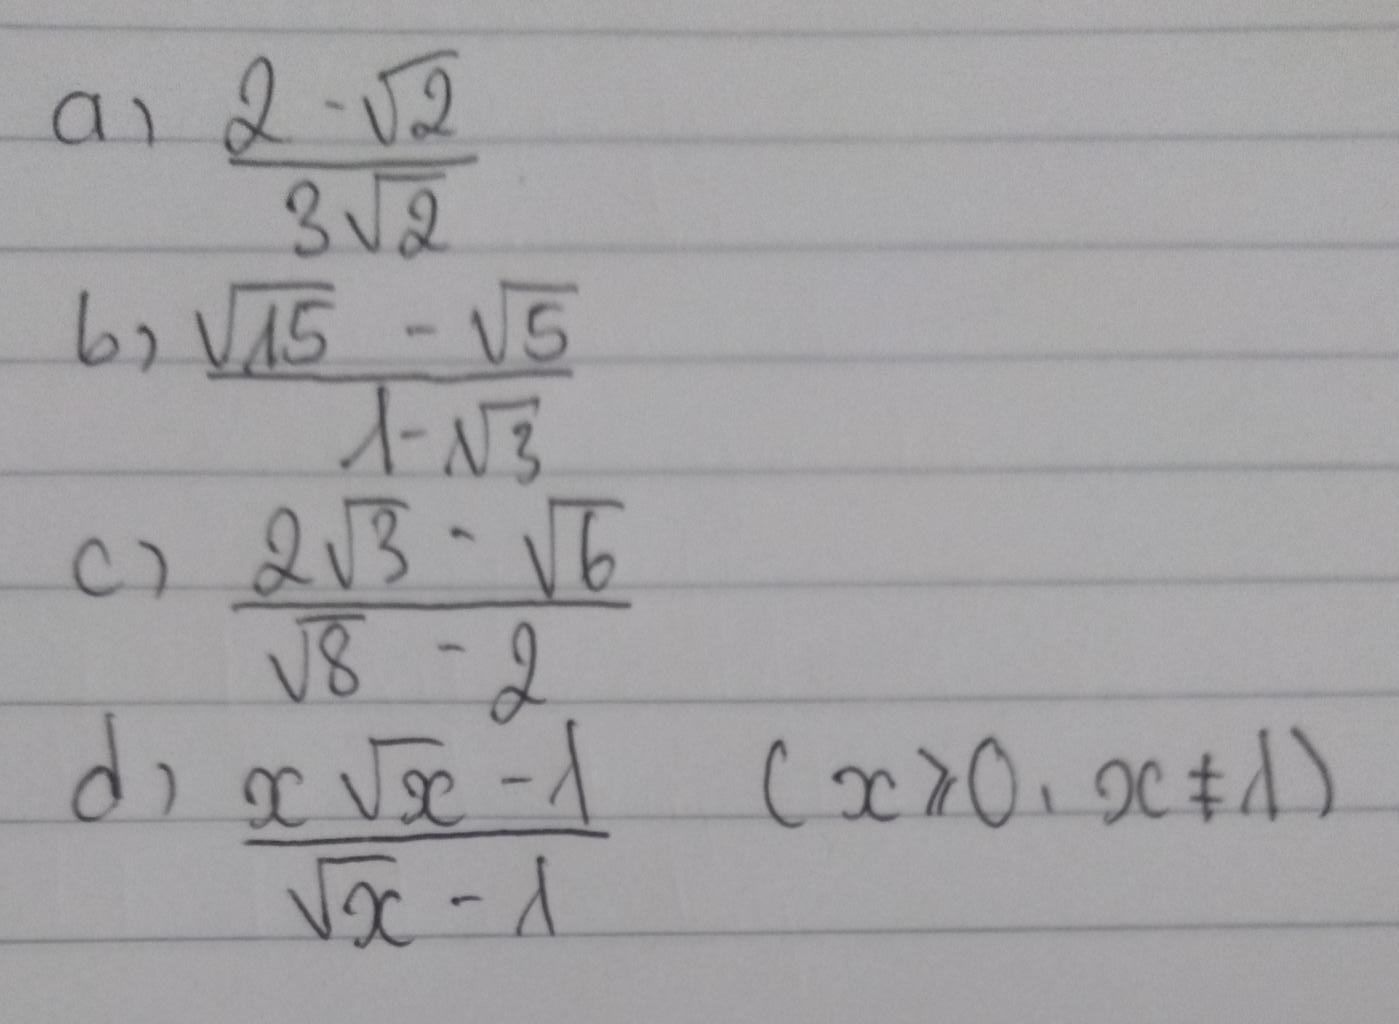 a, (2 - √2) / (3√2)
b, (√15 - √5) / (1 - √3)
c, (2√3 - √6) / (√8 - 2)
d, (x√x - 1) / (√x - 1) (x ⩾ 0, x ≠ 1)